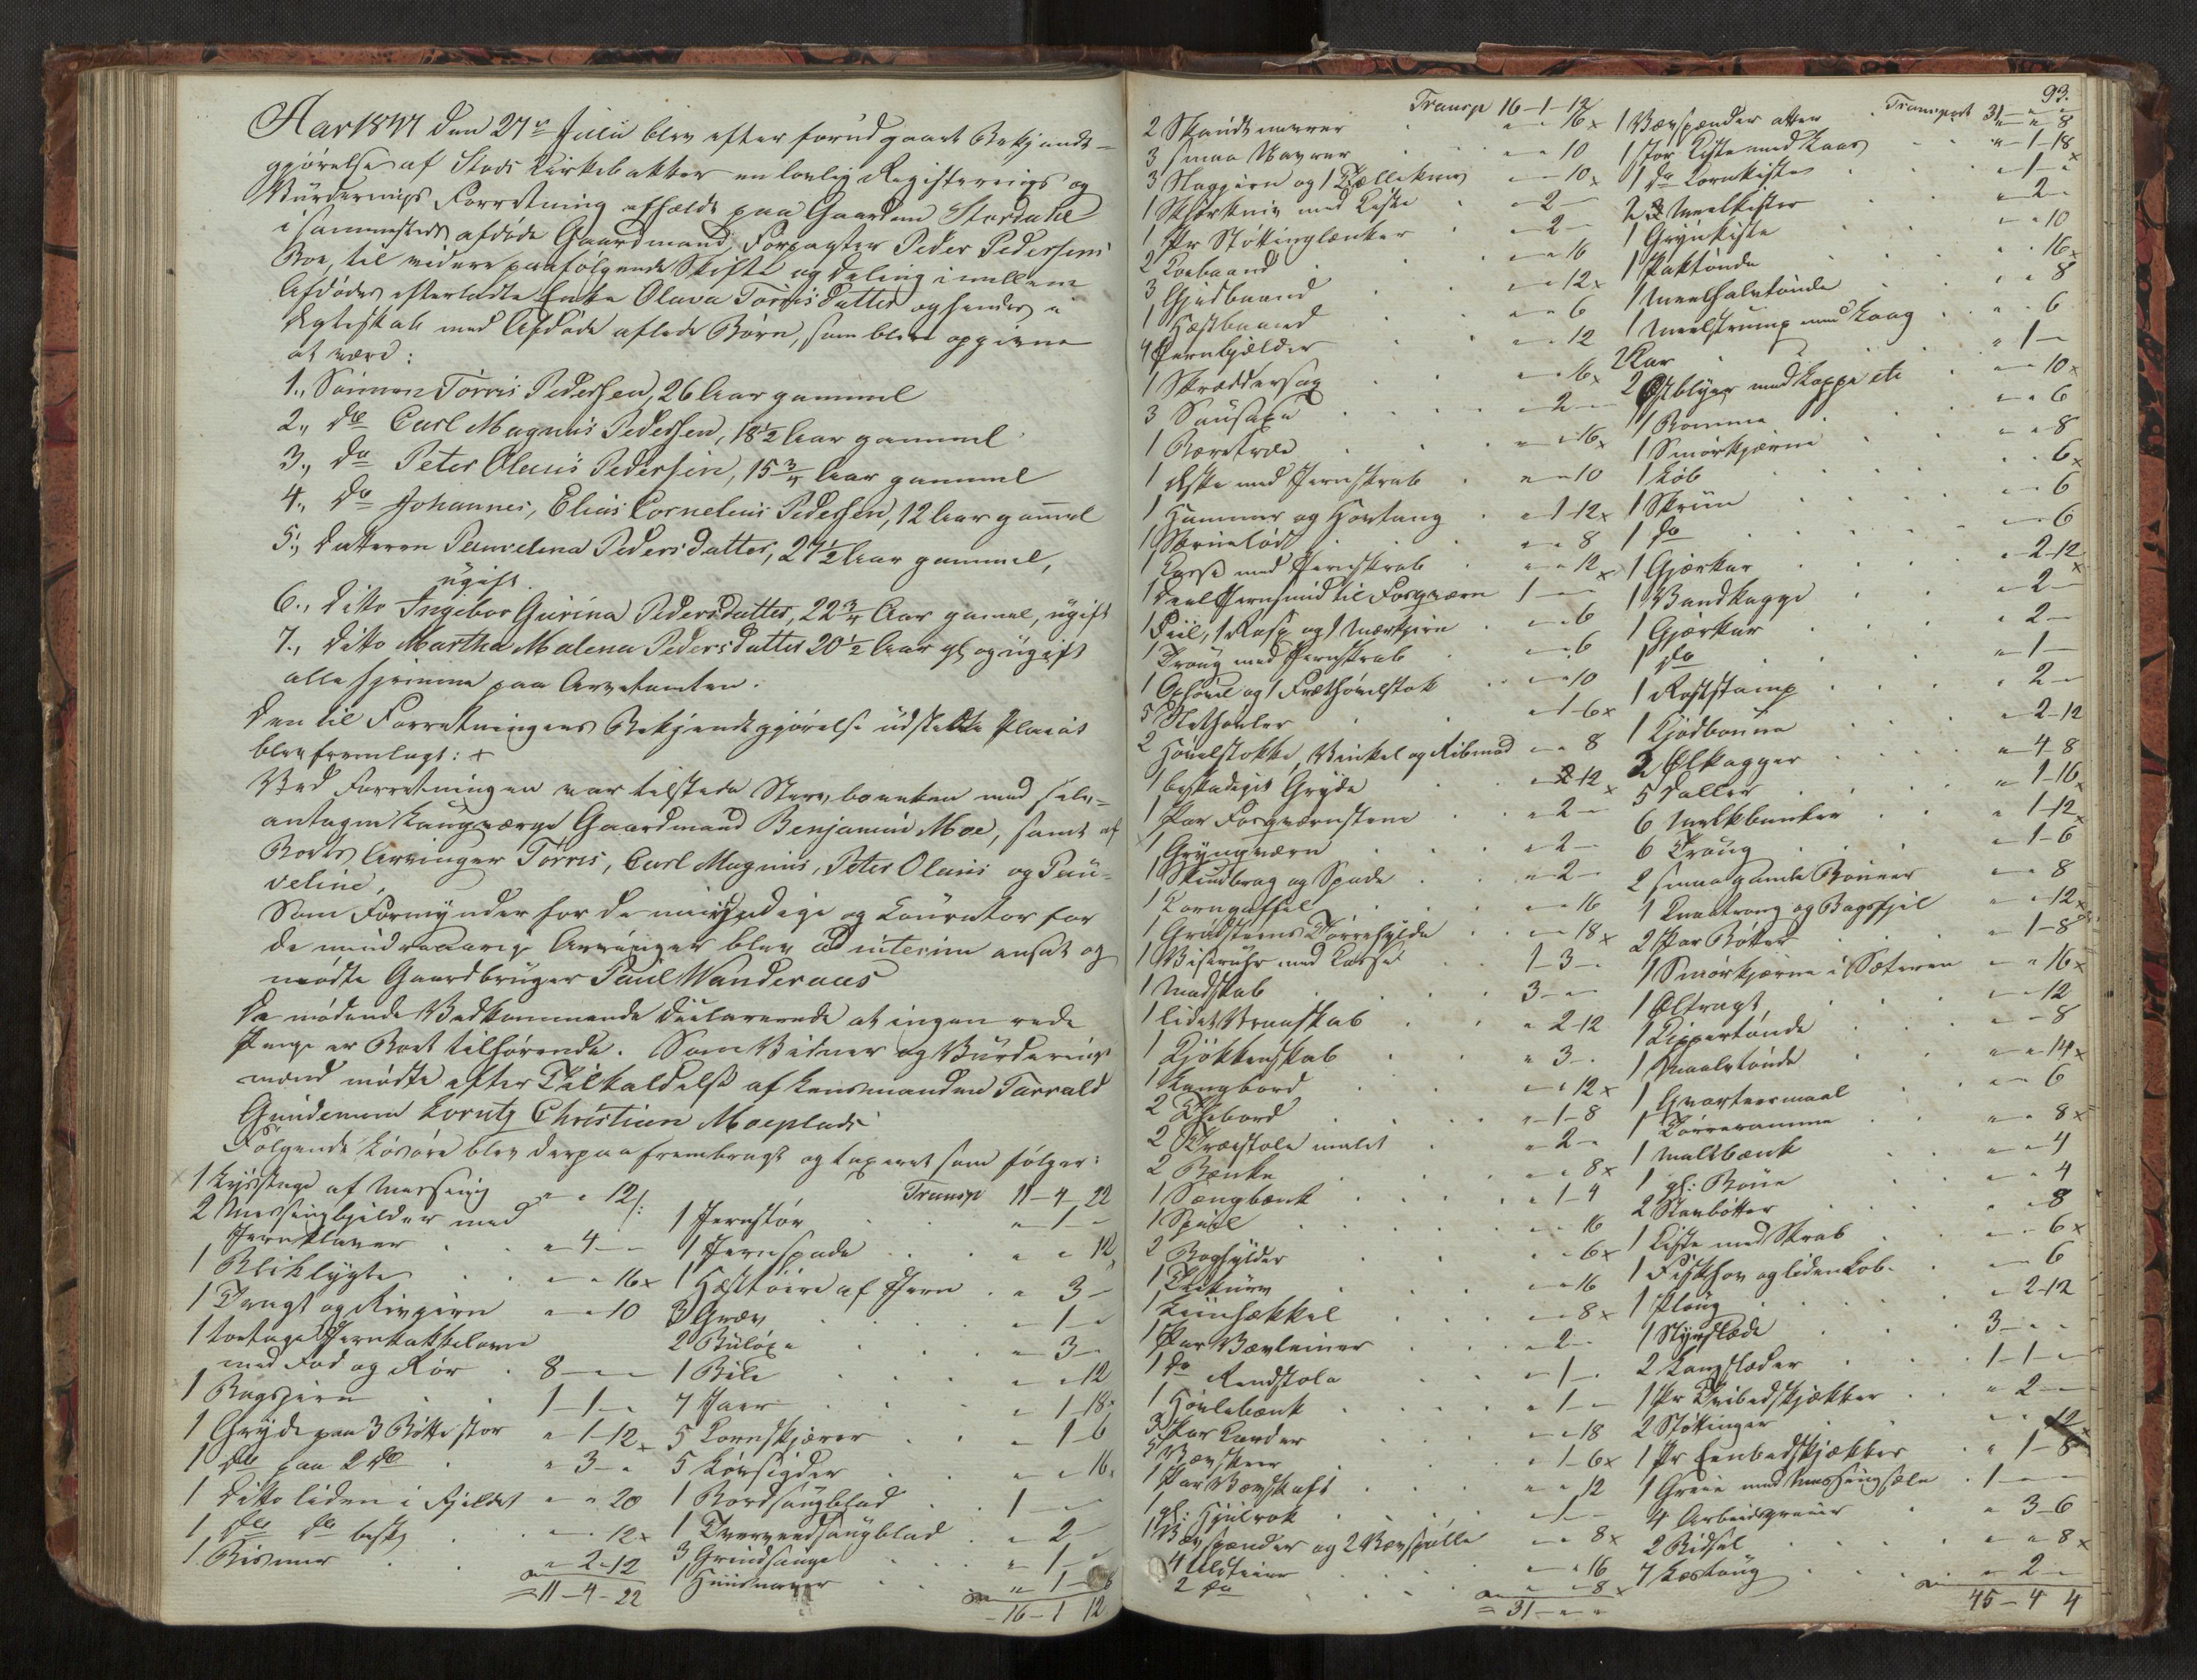 Aar 1841 den 27de Julii blev efter forudgaaet Bekjendt-
gjørelse af Stods Kirkebakke en lovlig Registerings og
Vurderings Forretning afholdt paa Gaarden Stordahl
i sammesteds afdøde Gaardmand, Forpagter Peder Pedersens
Boe, til videre paafølgende Skifte og Deling imellem
Afdødes efterladte Enke Olava Torris datter og hendes i
Ægteskab med Afdøde aflede Børn, som bleve opgivne
at være:
1., Sønnen Torris Pedersen, 26 Aar gammel
2., do Carl Magnus Pedersen, 18½ Aar gammel
3., do Peter Olaus Pedersen, 15¾ Aar gammel
4., do Johannes, Elias Cornelius Pedersen, 12 Aar gammel
5., Datteren Pauvelina Pedersdatter, 27½ Aar gammel,
ugift.
6., Ditto Ingebor Gurina Pedersdatter, 22¾ Aar gamel, ugift
7., Ditto Martha Malena Pedersdatter 20½ Aar gl og ugift
alle hjemme paa Arvetomten.
Den til Forretningens Bekjendtgjørelse udstedte Placat
blev fremlagt: +
Ved Forretningen var tilstede Stervboenken med selv-
antagen Laugværge Gaardmand Benjamin Moe, samt af
Boets Arvinger Torris, Carl Magnus, Peter Olaus og Pau-
veline.
Som Formynder for de umyndige og Kurator for
de mindreaarige Arvinger blev ad interim ansat og
mødte Gaardbruger Paul Wanderaas
De mødende Vedkommende declarerede at ingen rede
Penge er Boet tilhørende. Som Vidner og Vurderings
mænd mødte efter Tilkaldelse af Lensmanden Tarrald
Gundemum Lorntz Christian Moeplads
Følgende Løsøre blev derpaa frembragt og taxeret som følger:
1 Lysestage af Messing " " 12/:
2 Messingkjelder med
Jernklaver " 4 —
1 Bliklygte " " 16 x
1 Tragt og Rivjern " " 10
1 toetages Jernkakkelovn
med Fod og Rør 8 — —
1 Bagsjern 1-1-
1 Gryde paa 3 Bøtte stor " 1-12 x
1 do paa 2 do " 3 - "
1 Ditto liden i Fjeldet " " 20
1 do do best " 12 x
1 Bismer " 2-12
= 11-4-22
Transp 11-4-22
1 Jernstør " 1 -
1 Jernspade " " 12
1 Hestøire af Jern " 3 -
3 Græv " 1 -
2 Buløxe " 3 -
1 Bile " " 12
7 Jaer " 1-18
5 Kornskjærer " 1-6
5 Løvsigder " " 16
1 Bordsaugblad 1 —
1 Tverveedsaugblad " 2 -
3 Grindsauge " 1 -
1 Huusnaver " 1-
- 16-1 12
Transp 16-1-12
2 Skandsnavrer " " 16 x
3 smaa Navrer " " 10
3 Huggjern og 1 Tællekniv " " 10 x
1 Skjærekniv med Kiste " 2 —
1 Pr Støttinglænker " 2 —
2 Koebaand " " 16
3 Gjedbaand " " 12 x
1 Hestbaand " " 6
4 Jernkjælder " " 12
1 Skræddersax " " 16 x
3 Sausaxe " 2 —
1 Bæretræe " " 16 x
1 Æske med Jernskrab " " 10
1 Hammer og Hovtang " 1-12 x
1 Skrueløst " " 8
1 Kasse med Jernskrab " " 12 x
1 Deel Jernsmid til Forgværn 1 — —
1 Fiil, 1 Rasp og 1 Mærkjern " " 6
1 Traug med Jernskrab " " 6
1 Ophøvl og 1 Fræthøvelstok " " 10
5 Slethøvler " 1-6 x
2 Høvelstokke, Vinkel og Ribmod " " 8
1 beskadiget Gryde " 2-12 x
1 Par Forgværnstene " 2 —
1 Gryngværn " 2 —
1 Skiudbrag og Spade " 2 —
1 Korngaffel " " 16
1 Grudsteens Tørrehylde " " 18 x
1 Viserur med Kasse 1-3 -
1 Madskab 3 — —
1 lidet Vraaskab " 2-12
1 Kjøkkenskab " 3 -
1 Langbord " " 12 x
2 Thebord " 1-8
2 Træstole malet " 2 -
2 Bænke " " 8 x
1 Sængbænk " 1-4
1 Speil " " 16
2 Boghylder " " 6 x
1 Thekurv " " 16
1 Liinhækkel " " 8 x
1 Par Vævleiner " 2 -
1 do Rendstole " 1 -
1 Høvlebænk " 1 -
3 Par Karder " " 18
5 Vævskeer " 1-6 x
1 Par Vævskaft " " 12
1 gl: Hjulrok " 1 —
1 Vævspænder og 2 Vævspøller " " 8 x
4 Uldteiner " " 16
2 do " " 8 x
= 31 — " "
93.
Transport 31 — " "
1 Vævspænder atter " " 8
1 stor Kiste med Laas " 1-18 x
1 do Kornkiste " 1 — "
2 Meelkister " 2 —
1 Grynkiste " " 10
1 Paktønde " " 16 x
1 Meelhalvtønde " " 8
1 Meelstrump med Laag " " 6
2 Kar " 1 —
2 Ostblyer med Kappe etc " " 10 x
1 Bomme " " 6
1 Smørkjerne " " 8
1 Løb " " 6 x
1 Skrin " " 6
1 do " " 6
1 Gjærkar " 2-12 x
1 Vandkagge " 2 —
1 Gjærkar " 2 —
1 do " 1 —
1 Roststamp " 2 —
1 Kjødbonne " 2-12
2 Ølkagger " 4-8
5 Daller " 1-16 x
6 Melkbunker " 1-12 x
6 Traug " 1-6
2 smaa gamle Bønner " " 8
1 Knaetroug og Bagsfjel " " 12 x
2 Par Bøtter " 1-8
1 Smørkjærne i Sæteren " " 16 x
1 Øltragt " " 12
1 Kippertønde " " 8
1 Maaltønde " " 14 x
1 Qvarteermaal " " 6
1 Tørreramme " " 8 x
1 Maltbænk " " 4
1 gl: Bøne " " 4
2 Skarbøtter " " 8
1 Kiste med Skrab " " 6 x
1 Fiskhov og liden Kob. " " 6
1 Ploug " 2-12
1 Slyngslæde 3 — "
2 Langslæder 1-1 —
1 Pr Tvibedskjækker " 2 —
2 Støttinger " " 12 x
1 Pr Eenbedskjækker " 1-8
1 Greie med Messingsæle 1 — —
4 Arbeidsgreier " 3-6
2 Bidsel " " 8 x
7 Læstaug " 2 —
45-4 4